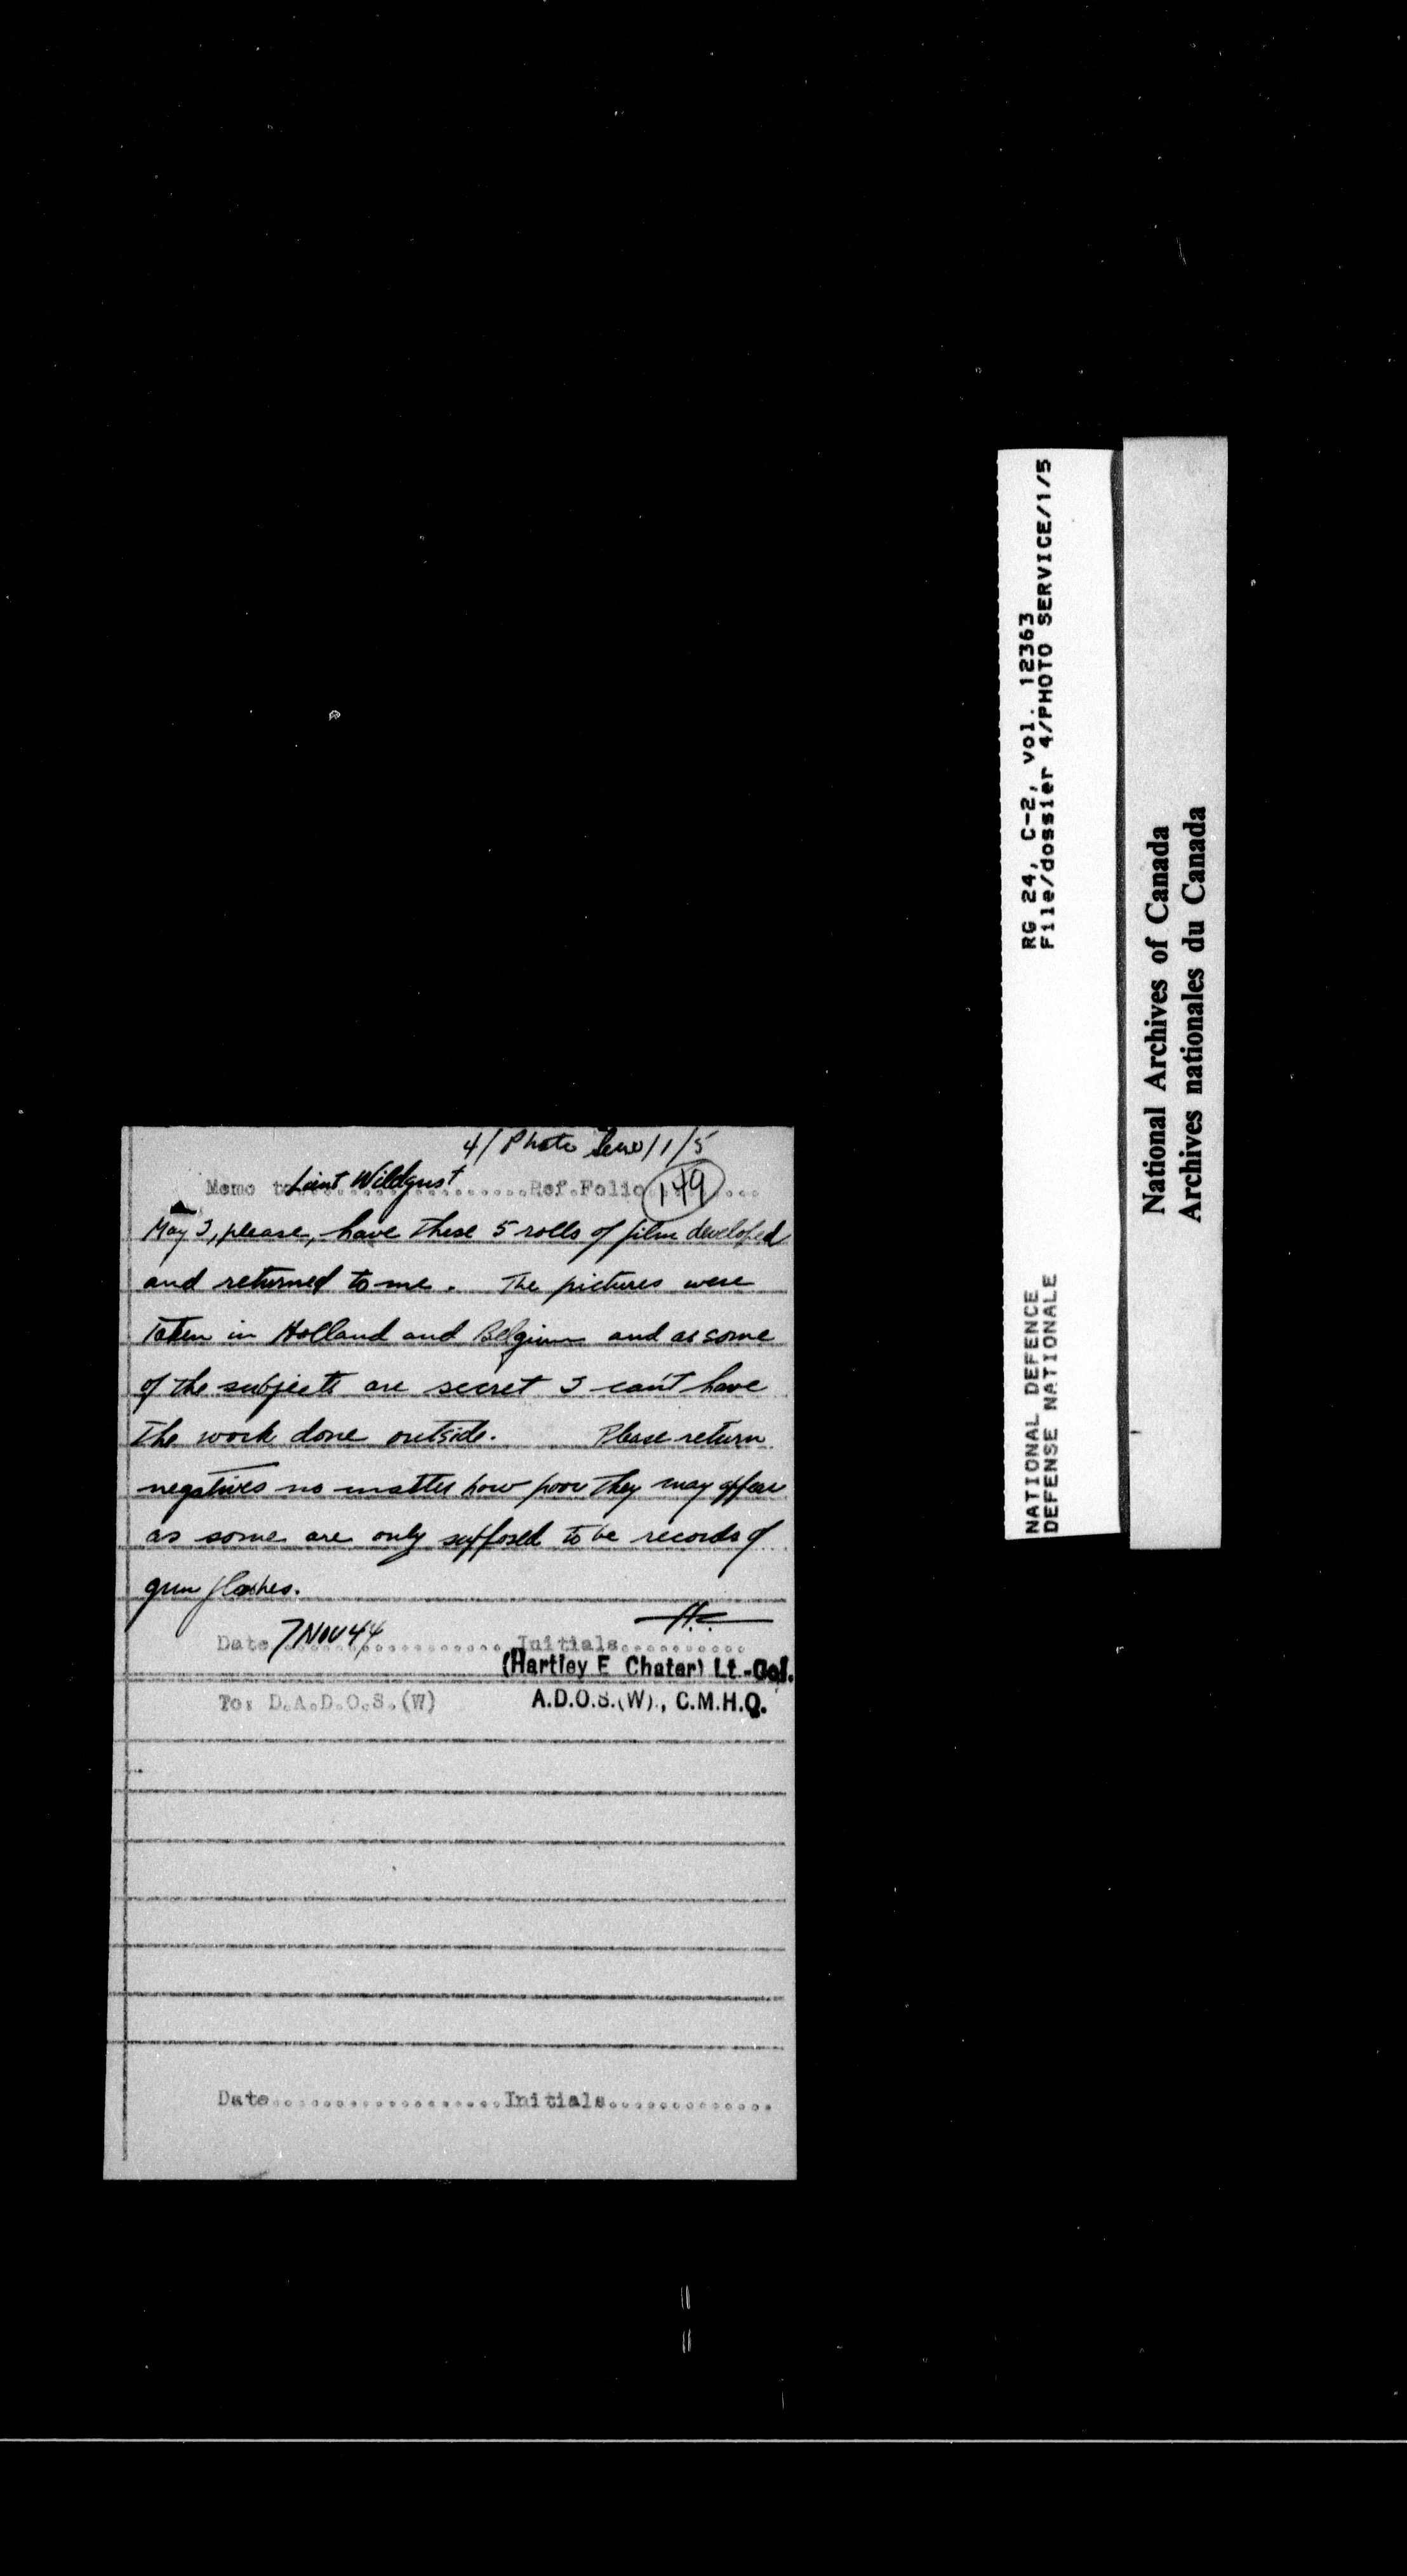 4/Photo Serv/1/5
Memo to Lieut Wildgust Ref. Folio 149
May I, please, have these 5 rolls of film developed
and returned to me. The pictures were
Taken in Holland and Belgium and as some
of the subjects are secret I can't have
the work done outside. Please return
negatives no matter how poor they may appear
as some are only supposed to be records of
gun flashes.
Date 7 NOV 44 Initials H.C.
(Hartley E Chater) Lt.-Col.
To: D.A.D.O.S.(W) A.D.O.S.(W)., C.M.H.Q.
Date....................Initials..............
RG 24, C-2, vol. 12363
File/dossier 4/PHOTO SERVICE/1/5
NATIONAL DEFENCE
DEFENSE NATIONALE
National Archives of Canada
Archives nationales du Canada